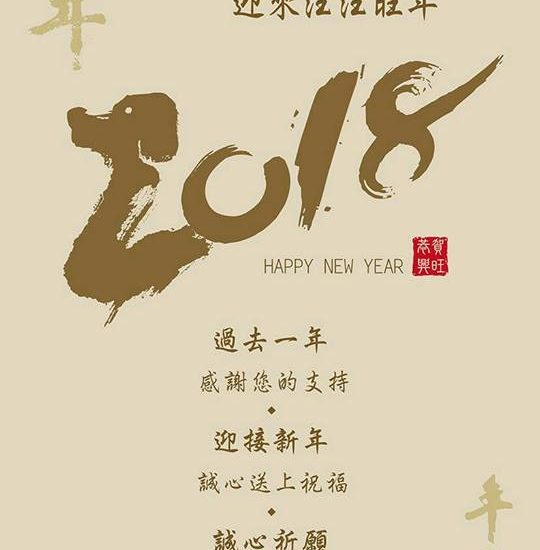 年
迎來汪汪旺年
2018
HAPPY NEW YEAR
恭賀
興旺
過去一年
感謝您的支持
迎接新年
誠心送上祝福
年
誠心祈願